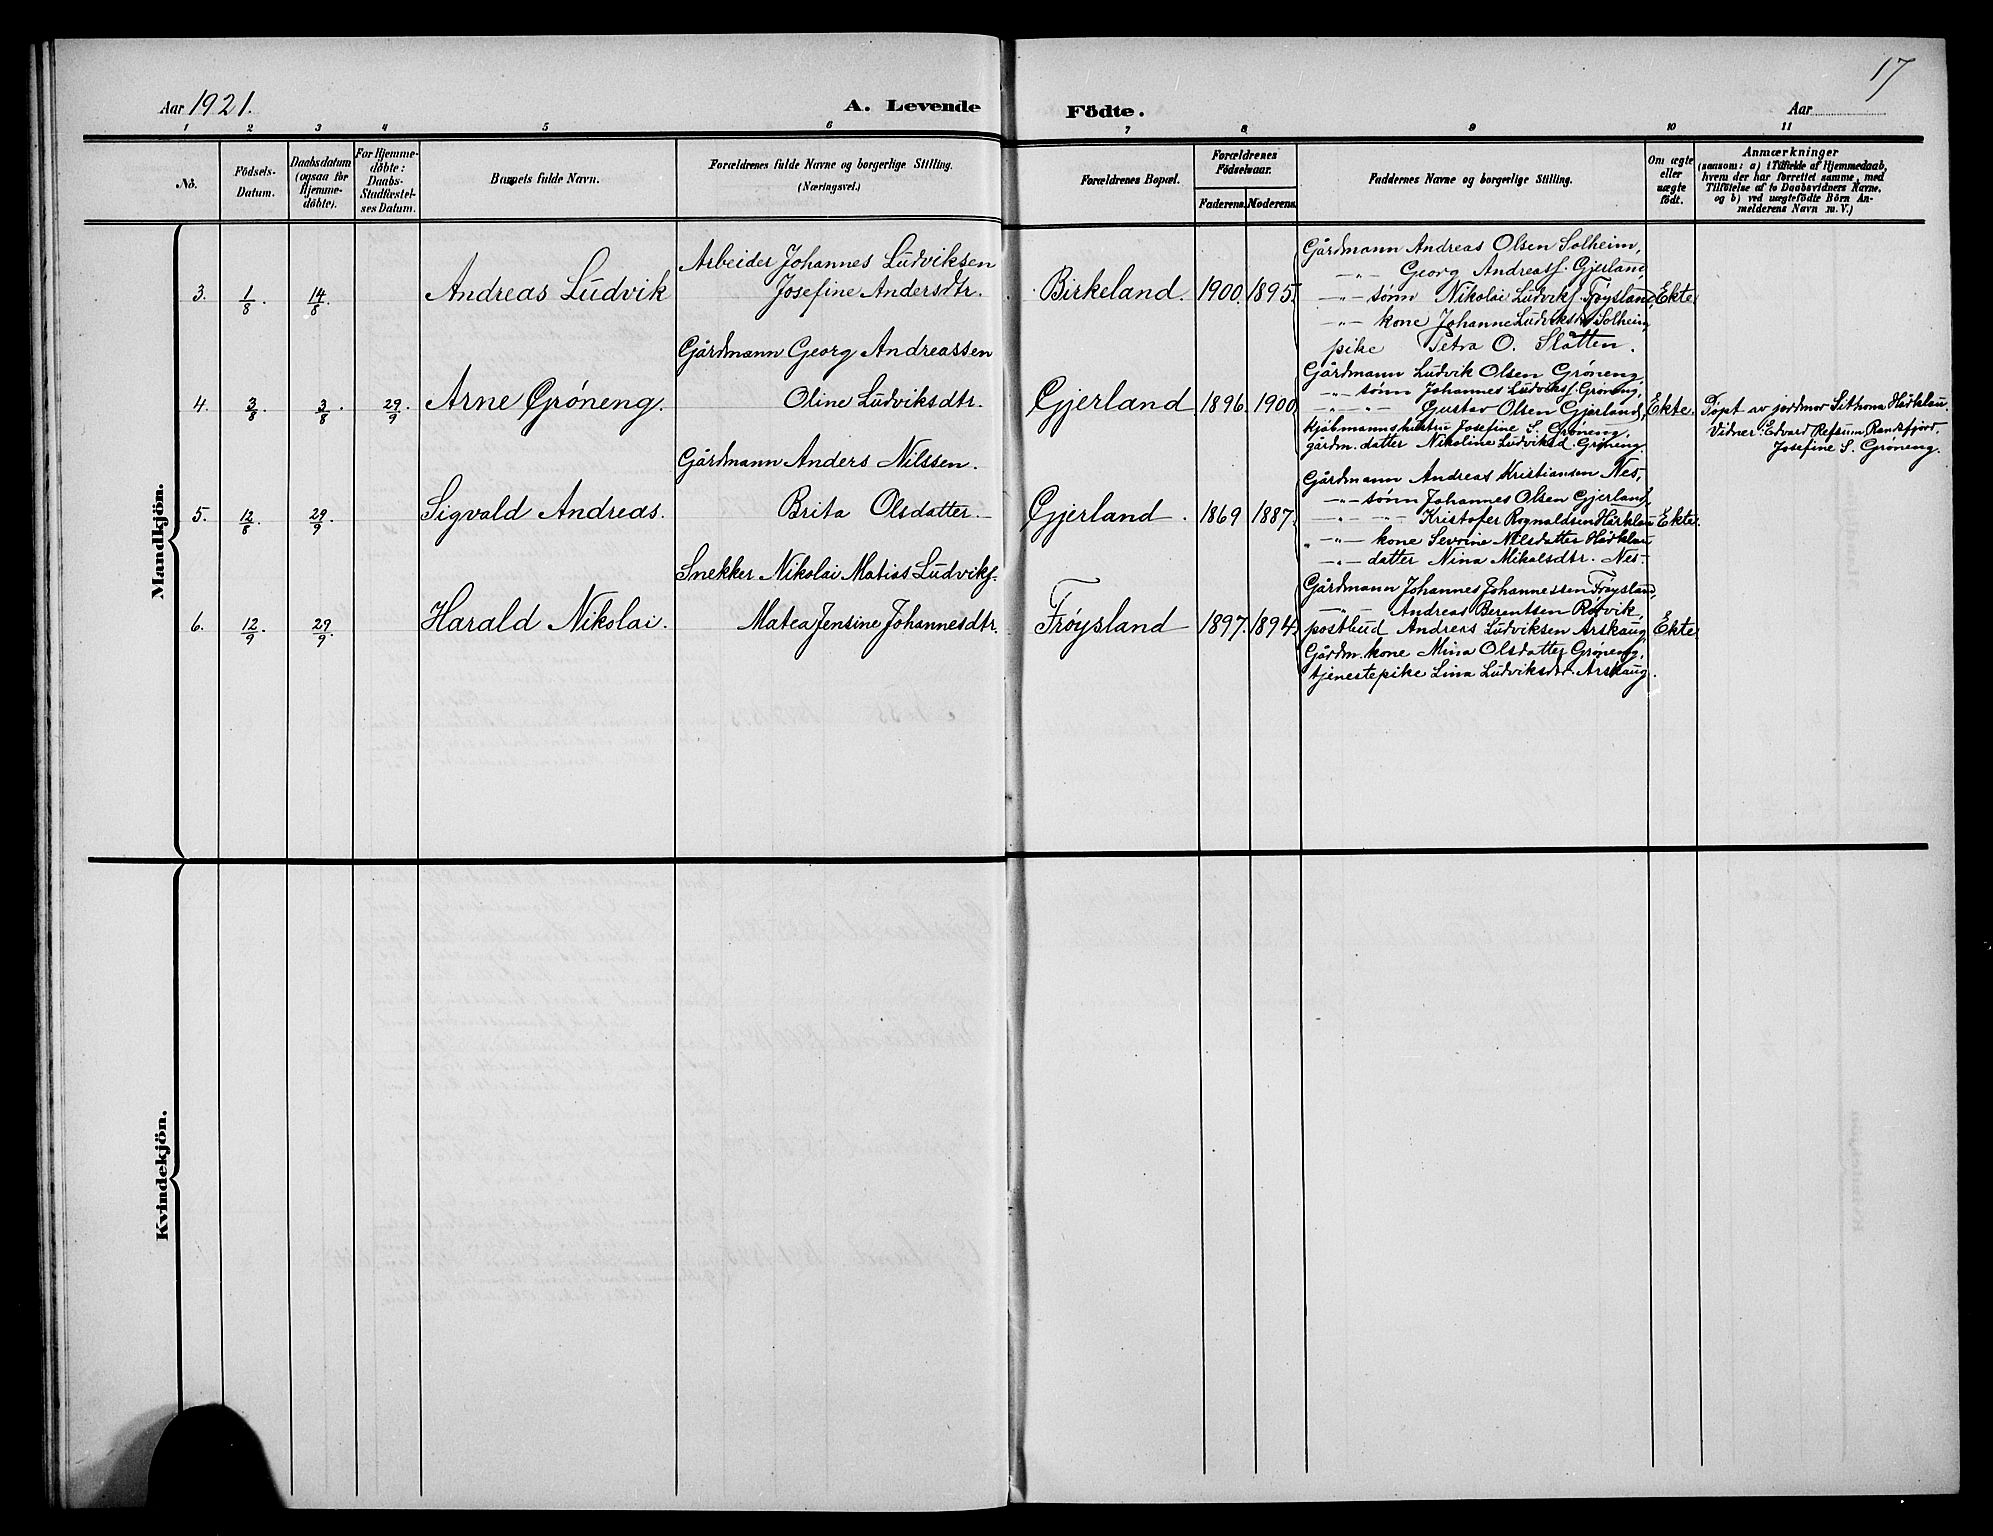 17
Aar 1921.
A. Levende
Födte.
Aar
1 2 3 4 5 6 7 8 9 10 11
No.
Födsels-
Datum.
Daabsdatum
(ogsaa for
Hjemme-
döbte).
For Hjemme-
döbte:
Daabs-
Stadfæstel-
ses Datum.
Barnets fulde Navn.
Forældrenes fulde Navne og borgerlige Stilling.
(Næringsvei.)
Forældrenes Bopæl.
Forældrenes
Födselsaar.
Faderens. Moderens.
Faddernes Navne og borgerlige Stilling.
Om ægte
eller
uægte
født.
Anmærkninger
(saasom: a) i Tilfælde af Hjemmedaab,
hvem der har forrettet samme, med
Tilföielse af to Daabsvidners Navne,
og b) ved uægtefödte Börn An-
melderens Navn m. V.)
Mandkjön.
3. 1/8. 14/8. Andreas Ludvik
Arbeider Johannes Ludviksen
Josefine Andersdtr.
Birkeland. 1900. 1895.
Gårdmann Andreas Olsen Solheim,
-"- Georg Andreass. Gjerland,
-"- sønn Nikolai Ludviks. Frøysland,
-"- kone Johanne Ludviksdtr Solheim,
pike Petra O. Slåtten.
Ekte
4. 3/8. 3/8. 29/9 Arne Grøneng.
Gårdmann Georg Andreassen
Oline Ludviksdtr.
Gjerland 1896. 1900.
Gårdmann Ludvik Olsen Grøneng,
-"- sønn Johannes Ludviks. Grøneng,
-"- " - Gustav Olsen Gjerland,
kjøbmannshustru Josefine S. Grøneng,
gårdm. datter Nikoline Ludviksd. Grøneng.
Ekte.
Døpt av jordmor Sithona Hårklau.
Vidner: Edvard Refsum, Randsfjord,
Josefine S. Grøneng.
5. 12/8. 29/9 Sigvald Andreas.
Gårdmann Anders Nilssen.
Brita Olsdatter.
Gjerland. 1869 1887.
Gårdmann Andreas Kristiansen Nes,
-"- sønn Johannes Olsen Gjerland,
-"- " - Kristofer Rognaldsen Hårklau
-"- kone Sevrine Nilsdatter Hårklau,
-"- datter Nina Mikalsdtr. Nes.
Ekte.
6. 12/9. 29/9. Harald Nikolai.
Snekker Nikolai Matias Ludviks.
Matea Jensine Johannesdtr.
Frøysland 1897. 1894.
Gårdmann Johannes Johannessen Frøysland,
-"- Andreas Berentsen Rotvik,
postbud Andreas Ludviksen Arskaug,
Gårdm. kone Mina Olsdatter Grøneng,
tjenestepike Lina Ludviksdtr. Arskaug.
Ekte
Kvindekjön.